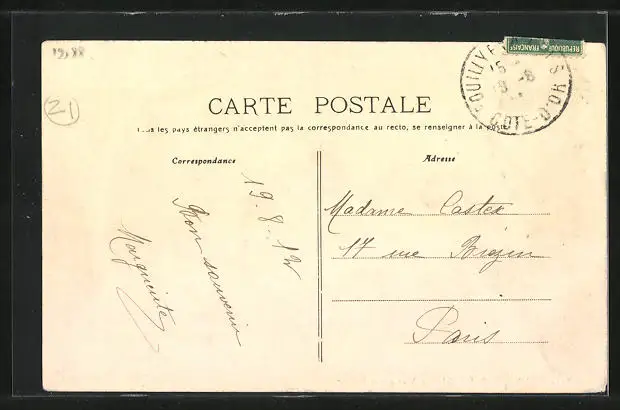 19,88
21
CARTE POSTALE
Tous les pays étrangers n'acceptent pas la correspondance au recto, se renseigner à la poste
Correspondance
19.8.12
Bon souvenir
Marguerite
Adresse
Madame Castex
17 rue Brezin
Paris
POUILLY
COTE-D'OR
REPUBLIQUE FRANÇAISE